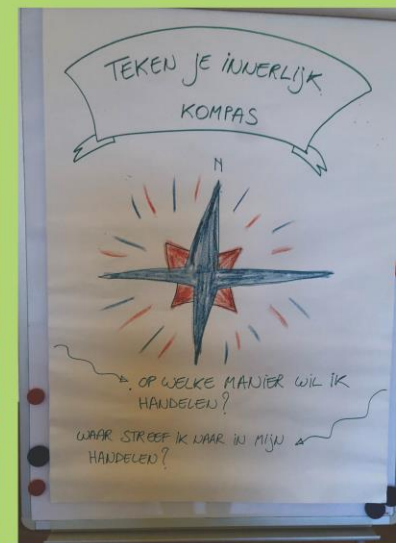 TEKEN JE INNERLIJK
KOMPAS
N
. OP WELKE MANIER WIL IK
HANDELEN?
WAAR STREEF IK NAAR IN MIJN
HANDELEN?